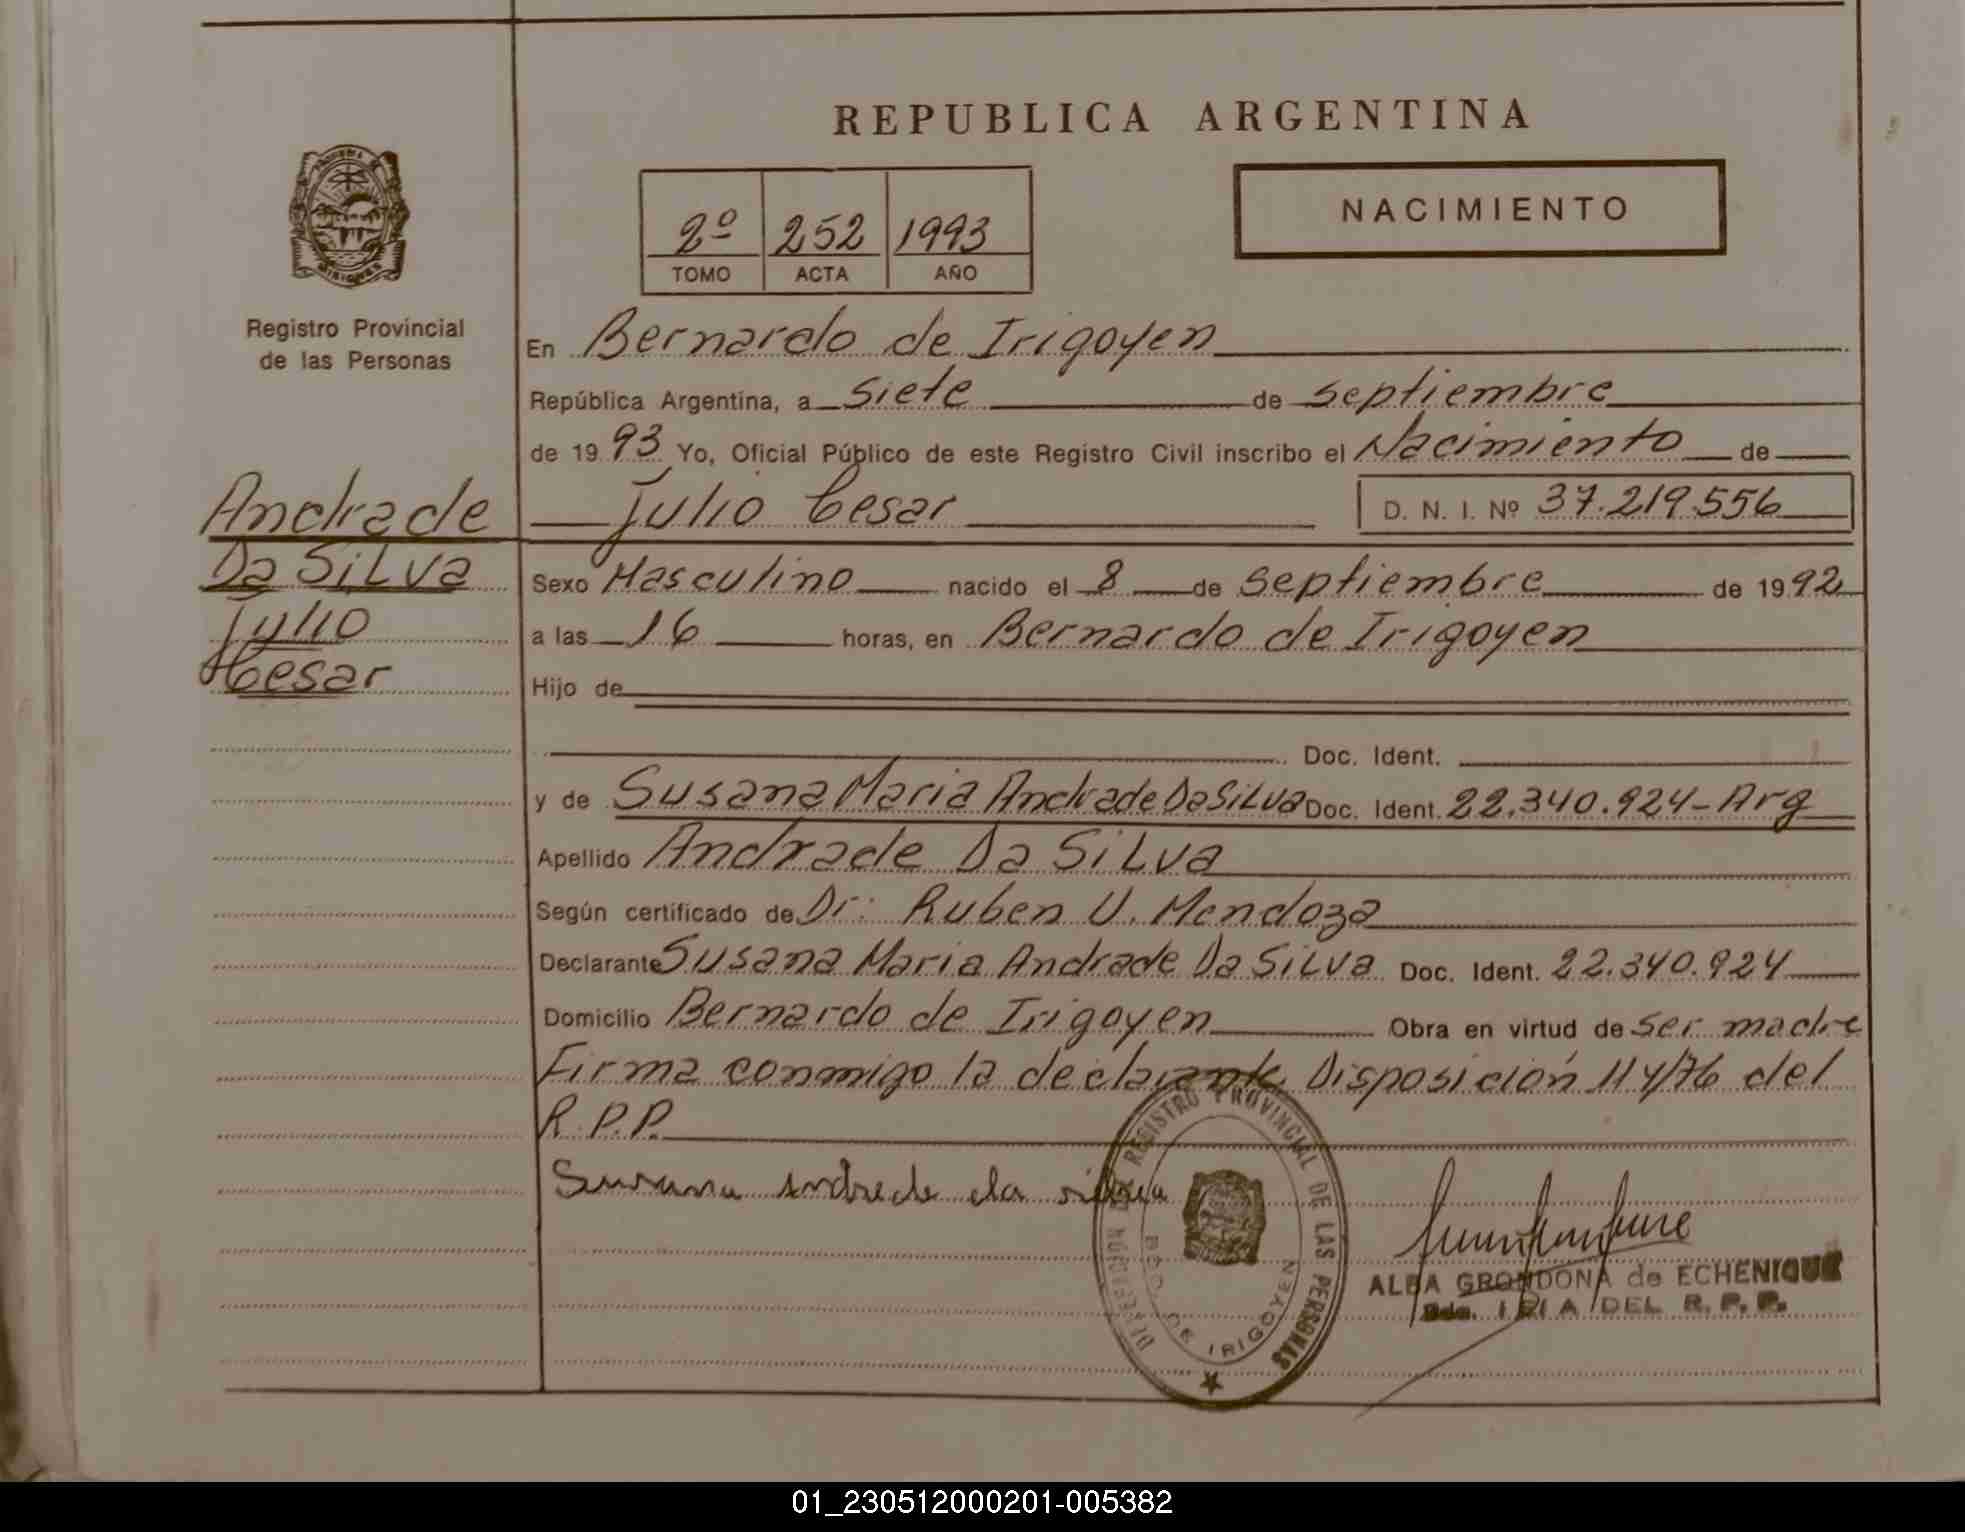 REPUBLICA ARGENTINA
2º 252 1993
TOMO ACTA AÑO
NACIMIENTO
MISIONES
Registro Provincial
de las Personas
Andrade
Da Silva
Julio
Cesar
En Bernardo de Irigoyen
República Argentina, a siete de septiembre
de 1993 Yo, Oficial Público de este Registro Civil inscribo el Nacimiento de
Julio Cesar D. N. I. Nº 37.219.556
Sexo Masculino nacido el 8 de septiembre de 1992
a las 16 horas, en Bernardo de Irigoyen
Hijo de
Doc. Ident.
y de Susana Maria Andrade Da Silva Doc. Ident. 22.340.924-Arg
Apellido Andrade Da Silva
Según certificado de Dr: Ruben U. Mendoza
Declarante Susana Maria Andrade Da Silva Doc. Ident. 22.340.924
Domicilio Bernardo de Irigoyen Obra en virtud de ser madre
Firma conmigo la declarante Disposición 114/76 del
R.P.P.
Susana Andrade da silva
REGISTRO PROVINCIAL DE LAS PERSONAS
DE IRIGOYEN
ALBA GRONDONA de ECHENIQUE
DEL R. P. P.
01_230512000201-005382